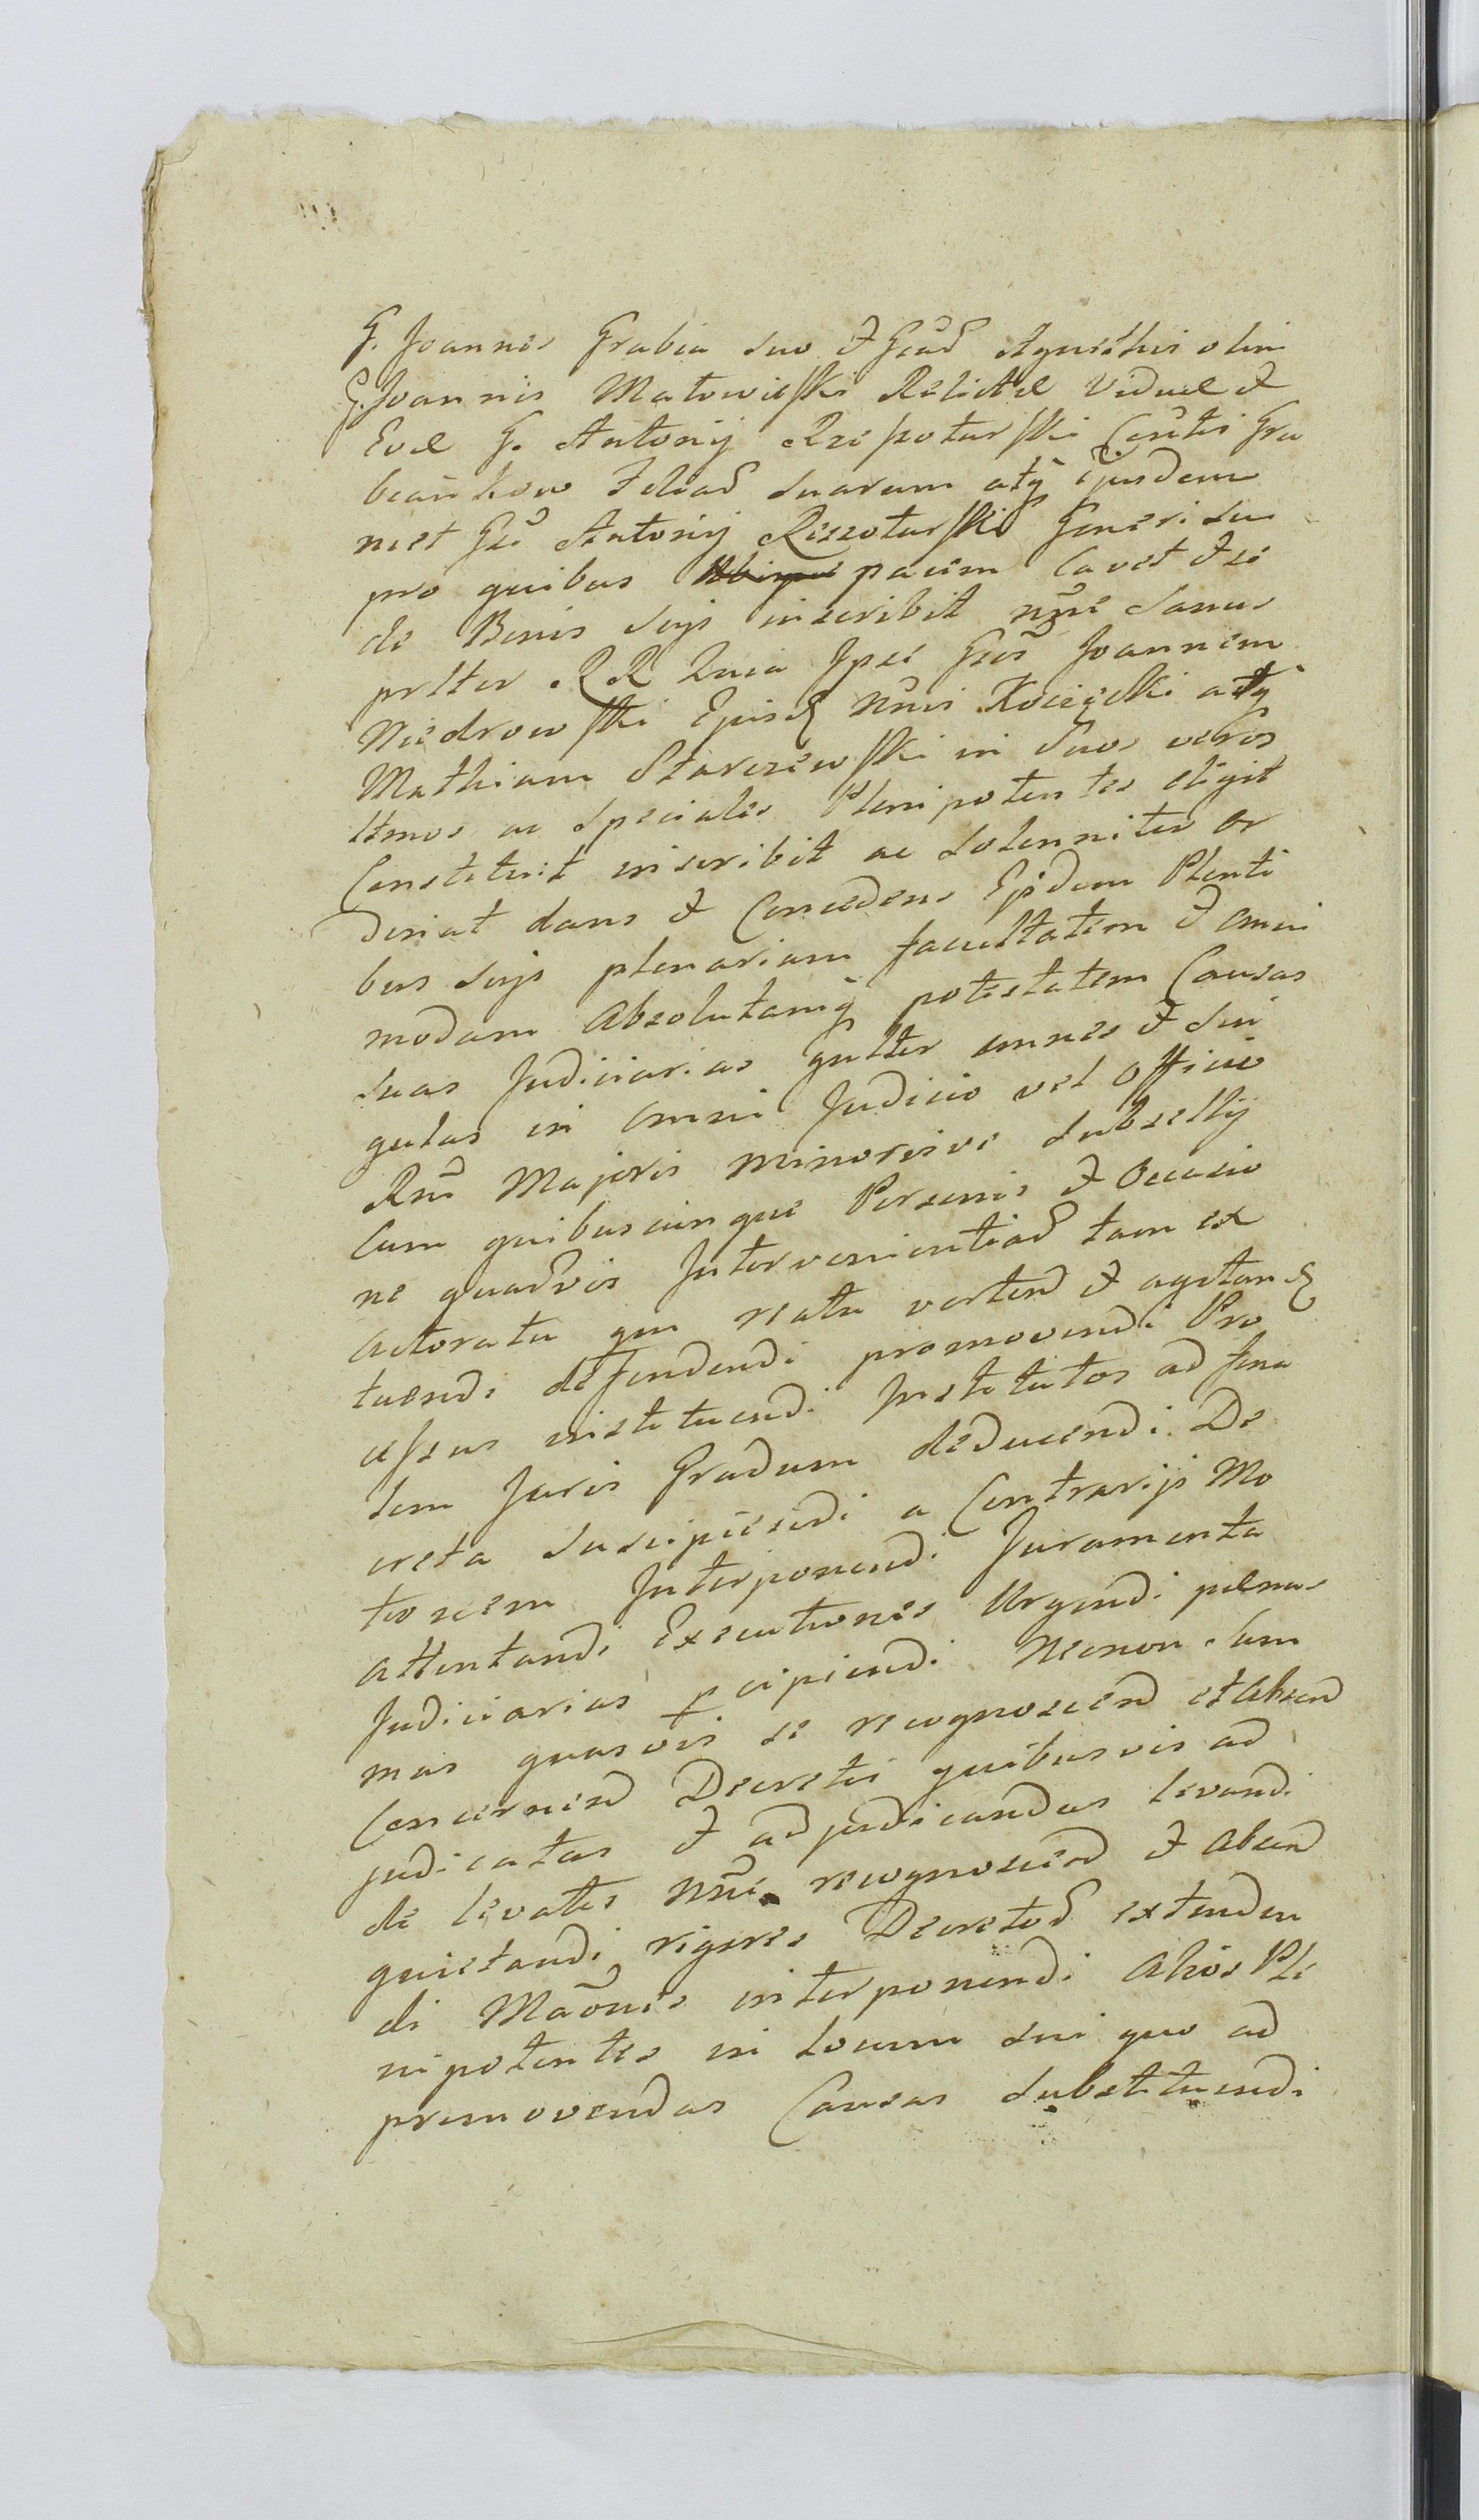 G. Joannes Grabia suo & Gear Agnethis olim
G. Joannis Matowieski Relictæ Viduæ &
Evæ G. Antonij Rzeszotarski Cosrtis Gra
beankow Filiar suarum atq ejusdem
met Gsi Antonij Rzeszotarski Generi sui
pro quibus pacim Cavet & se
de Bonis suijs inscribit nõie sanus
prltter R R Jura Ipse Gsos Joannem
Niedrowski Episc Nris Kocięcki atq
Mathiam Starczewski in Suos veros
ltmos ac Speciales Plenipotentes eligit
Constituit inscribit ac solenniter or
dinat dans & Concedens Ejsdem Plenti
bus suijs plenariam facultatem & omni
modam Absolutamq potestatem Causas
suas Judiciarias gnltter omnes & sin
gulas in omni Judicio vel Officio
Rni Majoris minorisve subsellij
Cum quibuscunque Personis & Occasio
ne quarvis Intervenientiar tam ex
actoratu qm reatu verten & agitan
tuendi defendendi promovendi Pro
cessus instituendi Institutos ad fina
lem Juris Gradum deducendi De
creta suscipiendi a Contrarijs Mo
tionem Interponendi Juramenta
Attentandi Executiones Urgendi pænas
Judiciarias pcipiendi Necnon sum
mas quasvis se recognoscen et Absen
Concernen Decretis quibusvis ad
judicatas & adjudicandas levandi
de levatis Nõie recognoscen & Absen
quietandi rigores Decretor extenden
di Mãones interponendi Alios Ple
nipotentes in locum sui quo ad
promovendas Causas substituendi